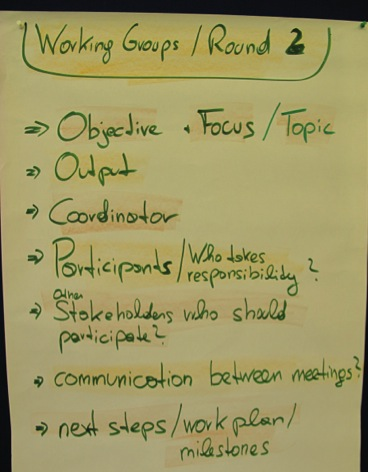 Working Groups / Round 2
⇒ Objective + Focus / Topic
⇒ Output
⇒ Coordinator
⇒ Participants / Who takes
responsibility?
⇒ Other Stakeholders who should
participate?
⇒ communication between meetings?
⇒ next steps / work plan /
milestones